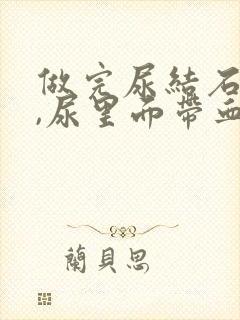 做完尿結石
,尿里面帶血
蘭貝思